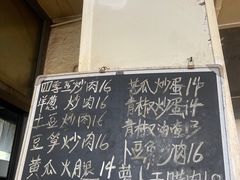 四季豆炒肉16
洋葱 炒肉16
土豆炒肉16
豆笋炒肉16
黄瓜火腿14
黄瓜炒蛋14
青椒炒蛋14
青椒
炒肉16